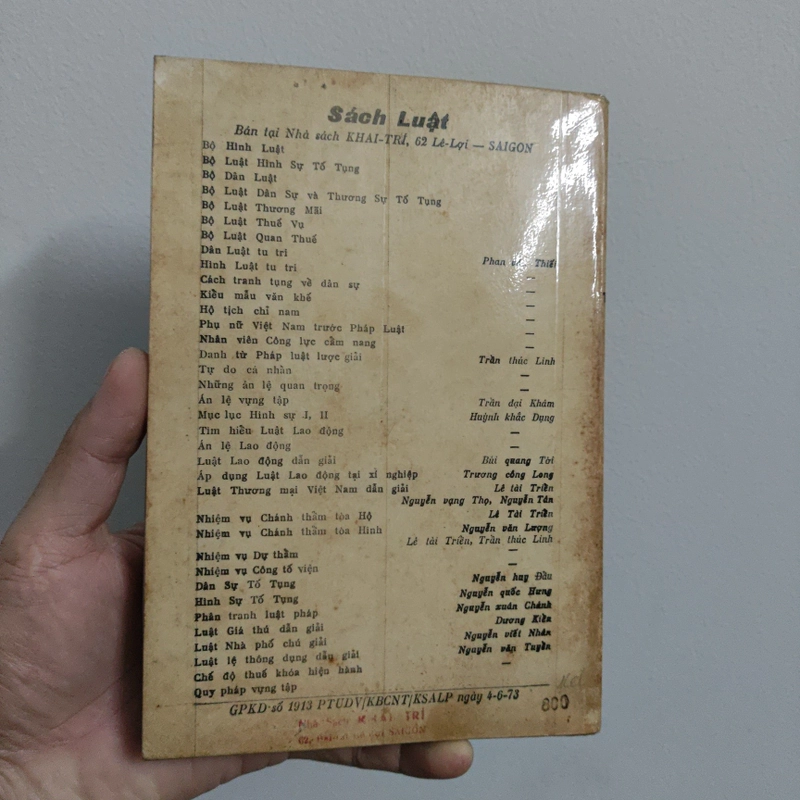 Sách Luật
Bán tại Nhà sách KHAI-TRÍ, 62 Lê-Lợi — SAIGON
Bộ Hình Luật
Bộ Luật Hình Sự Tố Tụng
Bộ Dân Luật
Bộ Luật Dân Sự và Thương Sự Tố Tụng
Bộ Luật Thương Mãi
Bộ Luật Thuế Vụ
Bộ Luật Quan Thuế
Dân Luật tu tri
Hình Luật tu tri Phan Thiết
Cách tranh tụng về dân sự —
Kiểu mẫu văn khế —
Hộ tịch chỉ nam —
Phụ nữ Việt Nam trước Pháp Luật —
Nhân viên Công lực cẩm nang —
Danh từ Pháp luật lược giải Trần thúc Linh
Tự do cá nhân —
Những án lệ quan trọng —
Án lệ vựng tập Trần đại Khâm
Mục lục Hình sự I, II Huỳnh khắc Dụng
Tìm hiểu Luật Lao động —
Án lệ Lao động —
Luật Lao động dẫn giải Bùi quang Tời
Áp dụng Luật Lao động tại xí nghiệp Trương công Long
Luật Thương mại Việt Nam dẫn giải Lê tài Triển
Nguyễn vạng Thọ, Nguyễn Tân
Nhiệm vụ Chánh thẩm tòa Hộ Lê Tài Triển
Nhiệm vụ Chánh thẩm tòa Hình Nguyễn văn Lượng
Lê tài Triển, Trần thúc Linh
Nhiệm vụ Dự thẩm —
Nhiệm vụ Công tố viện —
Dân Sự Tố Tụng Nguyễn huy Đẩu
Hình Sự Tố Tụng Nguyễn quốc Hưng
Phân tranh luật pháp Nguyễn xuân Chánh
Luật Gia thú dẫn giải Dương Kiền
Luật Nhà phố chú giải Nguyễn viết Nhân
Luật lệ thông dụng dẫn giải Nguyễn văn Tuyên
Chế độ thuế khóa hiện hành —
Quy pháp vựng tập
GPKD số 1913 PTUDV/KBCNT/KSALP ngày 4-6-73
800
KHAI TRÍ
62, SAIGON